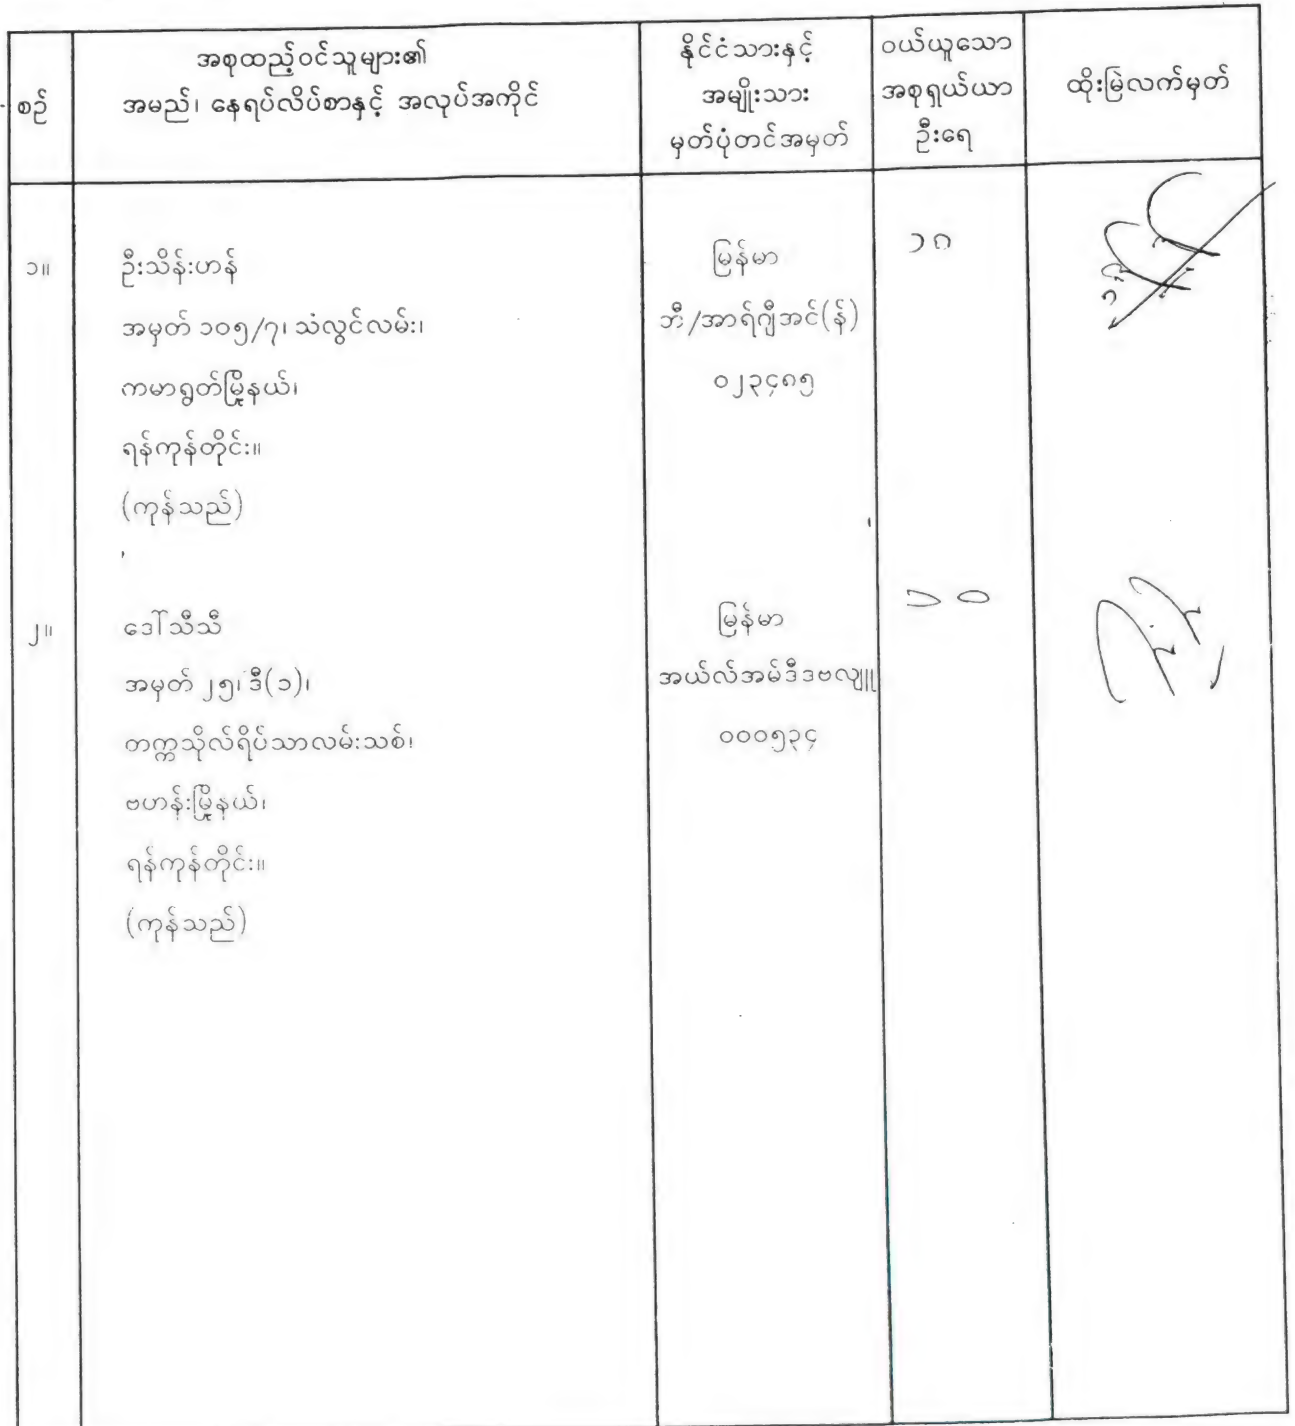 စဉ်
အစုထည့်ဝင်သူများ၏
အမည်၊ နေရပ်လိပ်စာနှင့် အလုပ်အကိုင်
နိုင်ငံသားနှင့်
အမျိုးသား
မှတ်ပုံတင်အမှတ်
ဝယ်ယူသော
အစုရှယ်ယာ
ဦးရေ
ထိုးမြဲလက်မှတ်
၁။
ဦးသိန်းဟန်
အမှတ် ၁၀၅/၇၊ သံလွင်လမ်း၊
ကမာရွတ်မြို့နယ်၊
ရန်ကုန်တိုင်း။
(ကုန်သည်)
မြန်မာ
ဘီ/အာရ်ဂျီအင်(န်)
၀၂၃၄၈၅
၁၈
၂။
ဒေါ်သီသီ
အမှတ် ၂၅၊ ဒီ(၁)၊
တက္ကသိုလ်ရိပ်သာလမ်းသစ်၊
ဗဟန်းမြို့နယ်၊
ရန်ကုန်တိုင်း။
(ကုန်သည်)
မြန်မာ
အယ်လ်အမ်ဒီဒဗလျူ
၀၀၀၅၃၄
၁၀